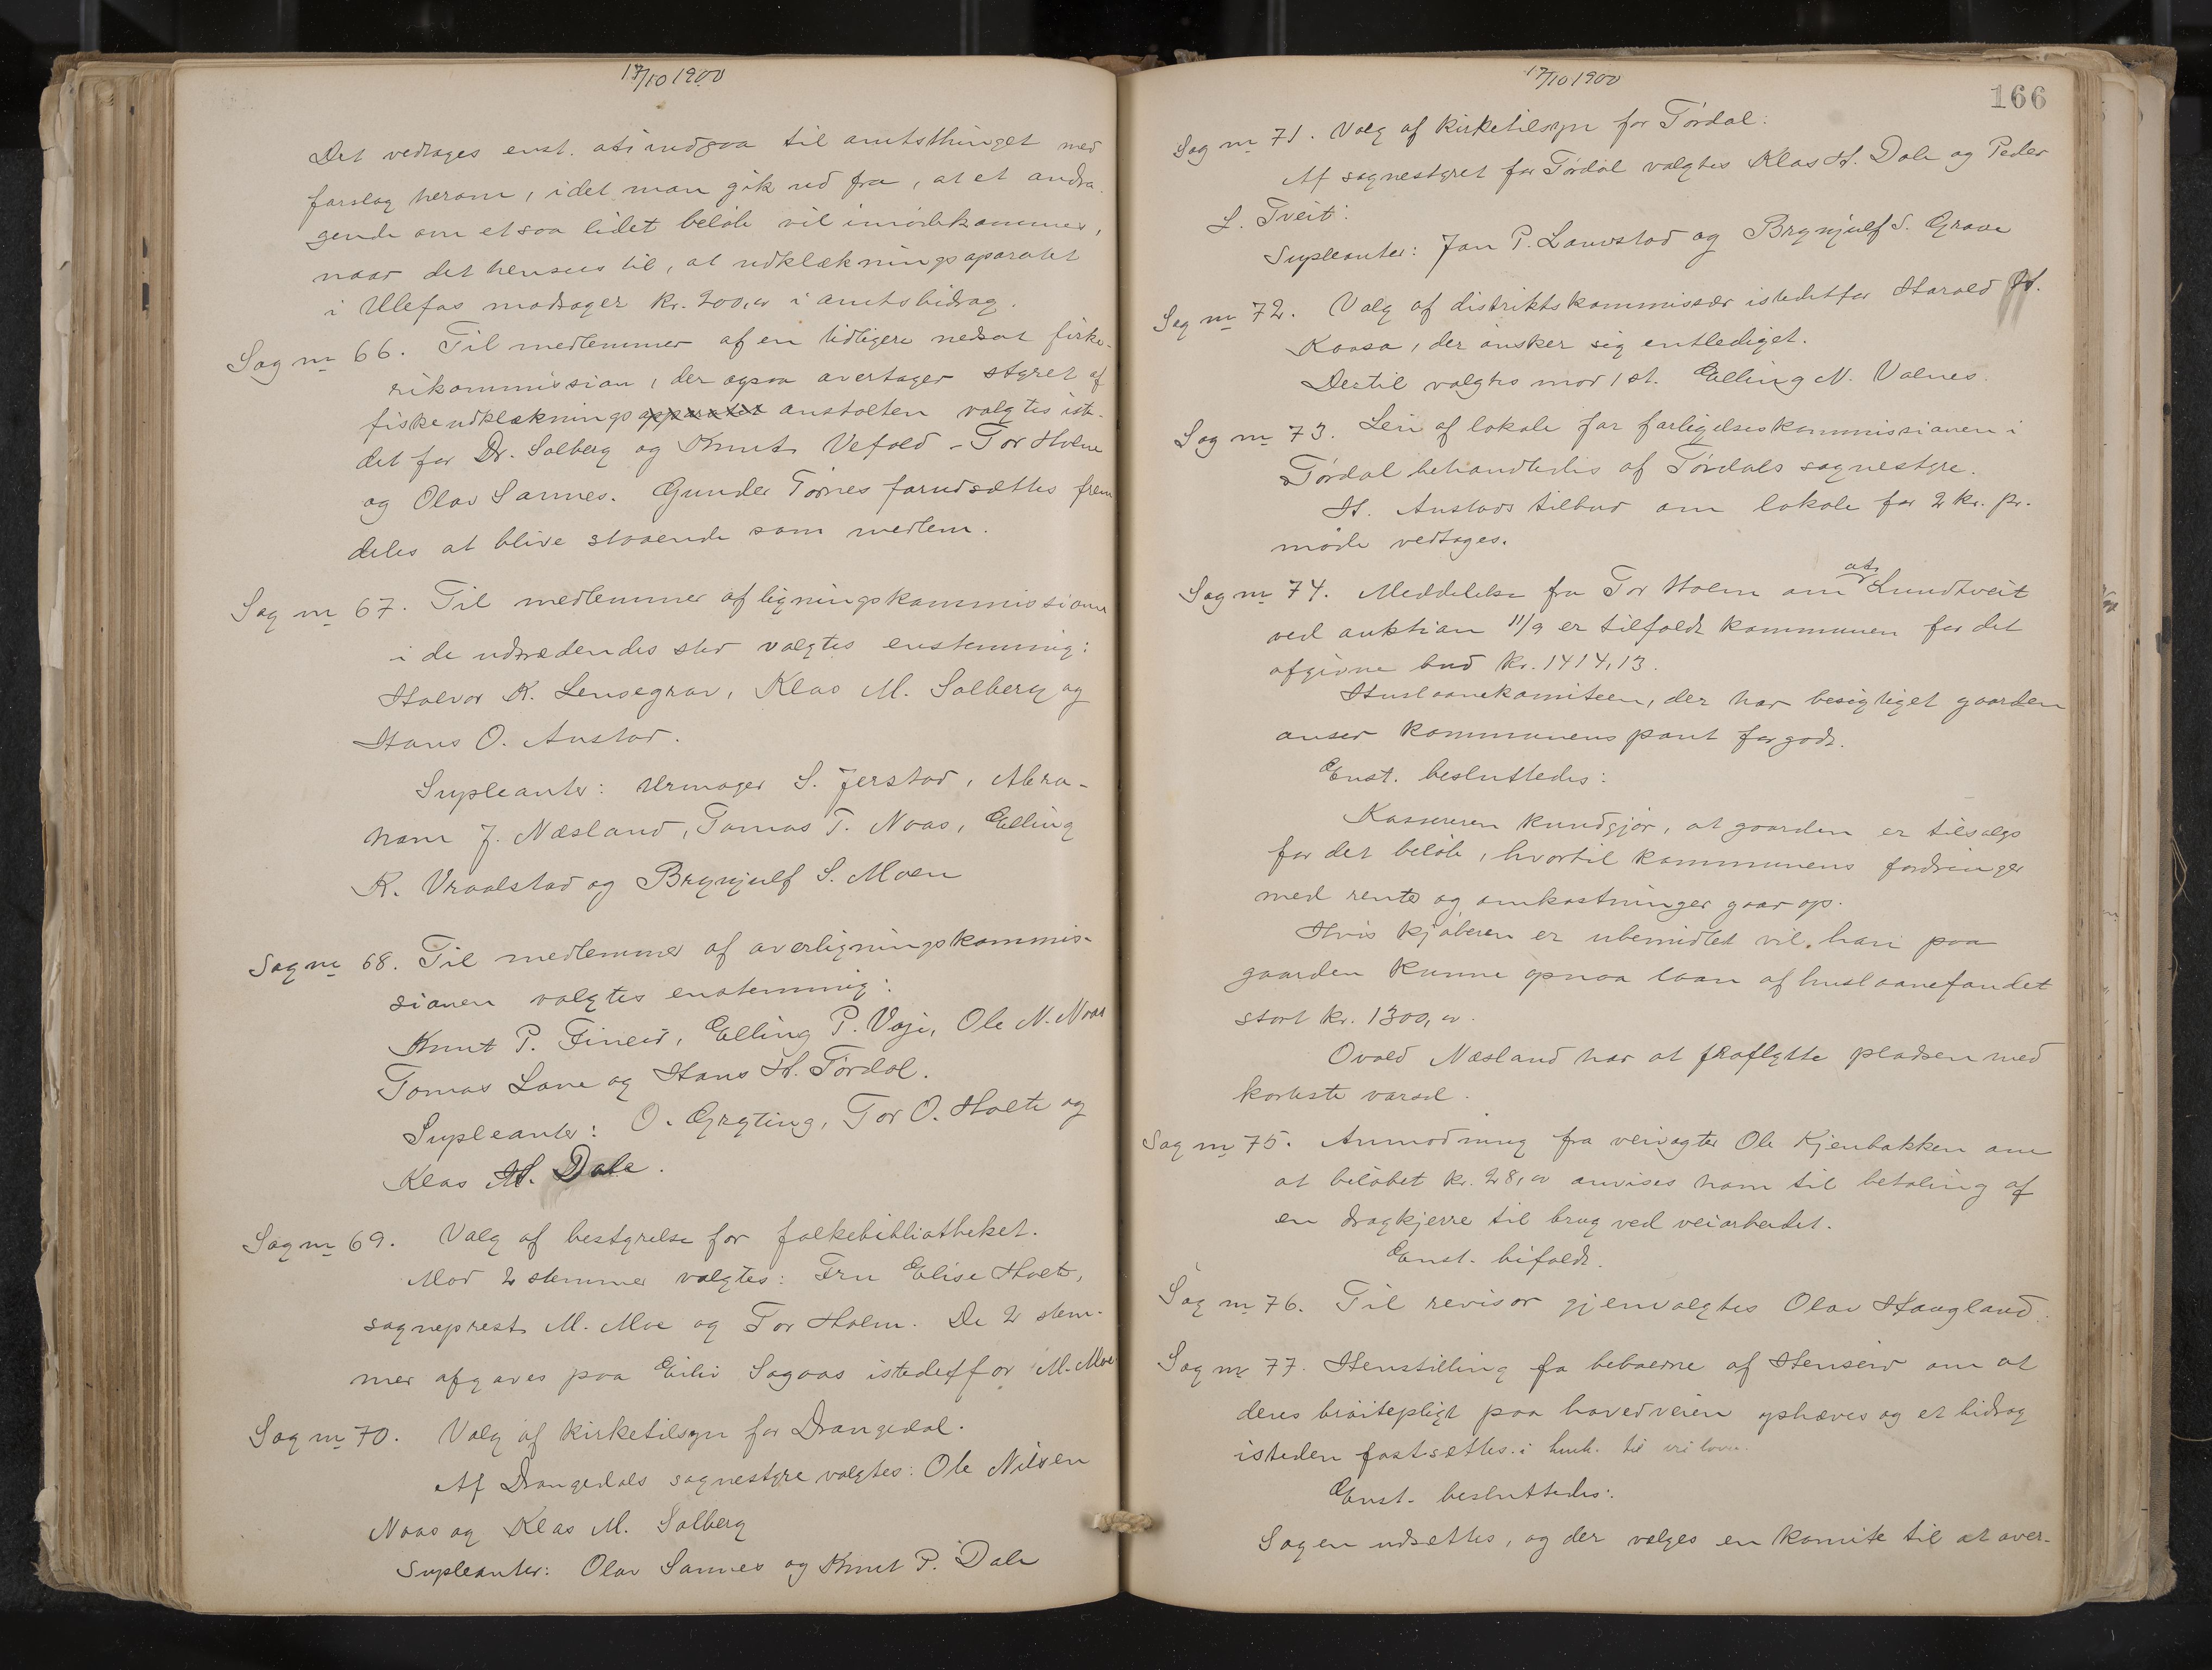 17/10 1900
Det vedtages enst. at indgaa til amtsthinget med
forslag herom, idet man gik ud fra, at et andra-
gende om et saa lidet beløb vil imødekommes,
naar det henses til, at udklækningsaparatet
i Ulefos modtager kr. 200,00 i amtsbidrag.
Sag nr 66. Til medlemmer af en tidligere nedsat fiske-
rikommission, der ogsaa overtager styret af
fiskeudklæknings apparatet anstalten valgtes iste-
det for Dr. Solberg og Knut Vefald - Tor Holm
og Olav Sannes. Gunder Tørnes forudsættes frem
deles at blive staaende som medlem.
Sag nr 67. Til medlemmer af ligningskommissionen
i de udtrædendes sted valgtes enstemmig:
Halvor K. Lensegrav, Klas M. Solberg og
Hans O. Austad.
Supleanter: Urmager S. Jerstad, Abra-
ham J. Næsland, Tomas T. Noas, Elling
K. Vraalstad og Brynjulf S. Moen
Sag nr 68. Til medlemmer af overligningskommis-
sionen valgtes enstemmig:
Knut P. Fineid, Elling P. Voje, Ole N. Noas
Tomas Lone og Hans H. Tørdal.
Supleanter: O. Gryting, Tor O. Holte og
Klas H. Dale.
Sag nr 69. Valg af bestyrelse for folkebibliotheket.
Mod 2 stemmer valgtes: Fru Elise Holte,
sogneprest M. Moe og Tor Holm. De 2 stem-
mer afgaves paa Eiliv Sagaas istedetfor M. Moe
Sag nr 70. Valg af kirketilsyn for Drangedal.
Af Drangedals sognestyre valgtes: Ole Nilsen
Noas og Klas M. Solberg
Supleanter: Olav Sannes og Knut P. Dale
17/10 1900
166
Sag nr 71. Valg af kirketilsyn for Tørdal:
Af sognestyret for Tørdal valgtes Klas H. Dale og Peder
L. Tveit:
Supleanter: Jon P. Lauvstad og Brynjulf S. Grave
Sag nr 72. Valg af distriktskommissær istedetfor Harald H.
Kaasa, der ønsker sig entlediget.
Dertil valgtes mod 1 st. Elling N. Valnes.
Sag nr 73. Leie af lokale for forligelseskommissionen i
Tørdal behandledes af Tørdals sognestyre.
H. Austads tilbud om lokale for 2 kr. pr.
møde vedtages.
Sag nr 74. Meddelelse fra Tor Holm om at Lundtveit
ved auktion 11/9 er tilfaldt kommunen for det
afgivne bud kr. 1414,13.
Huslaanekomiteen, der har besigtiget gaarden
anser kommunens pant for godt.
Enst. besluttedes:
Kassereren kundgjør, at gaarden er tilsalgs
for det beløb, hvortil kommunens fordringer
med renter og omkostninger gaar op.
Hvis kjøberen er ubemidlet vil han paa
gaarden kunne opnaa laan af huslaanefondet
stort kr. 1300,00.
Ovald Næsland har at fraflytte pladsen med
korteste varsel.
Sag nr 75. Anmodning fra veivogter Ole Kjenbakken om
at beløbet kr. 28,00 anvises ham til betaling af
en dragkjerre til brug ved veiarbeidet.
Enst. bifaldt.
Sag nr 76. Til revisor gjenvalgtes Olav Haugland.
Sag nr 77. Henstilling fra beboerne af Henseid om at
deres brøitepligt paa hovedveien ophæves og et bidrag
isteden fastsettes i henh. til veiloven.
Enst. besluttedes:
Sagen udsettes, og der velges en komite til at over-